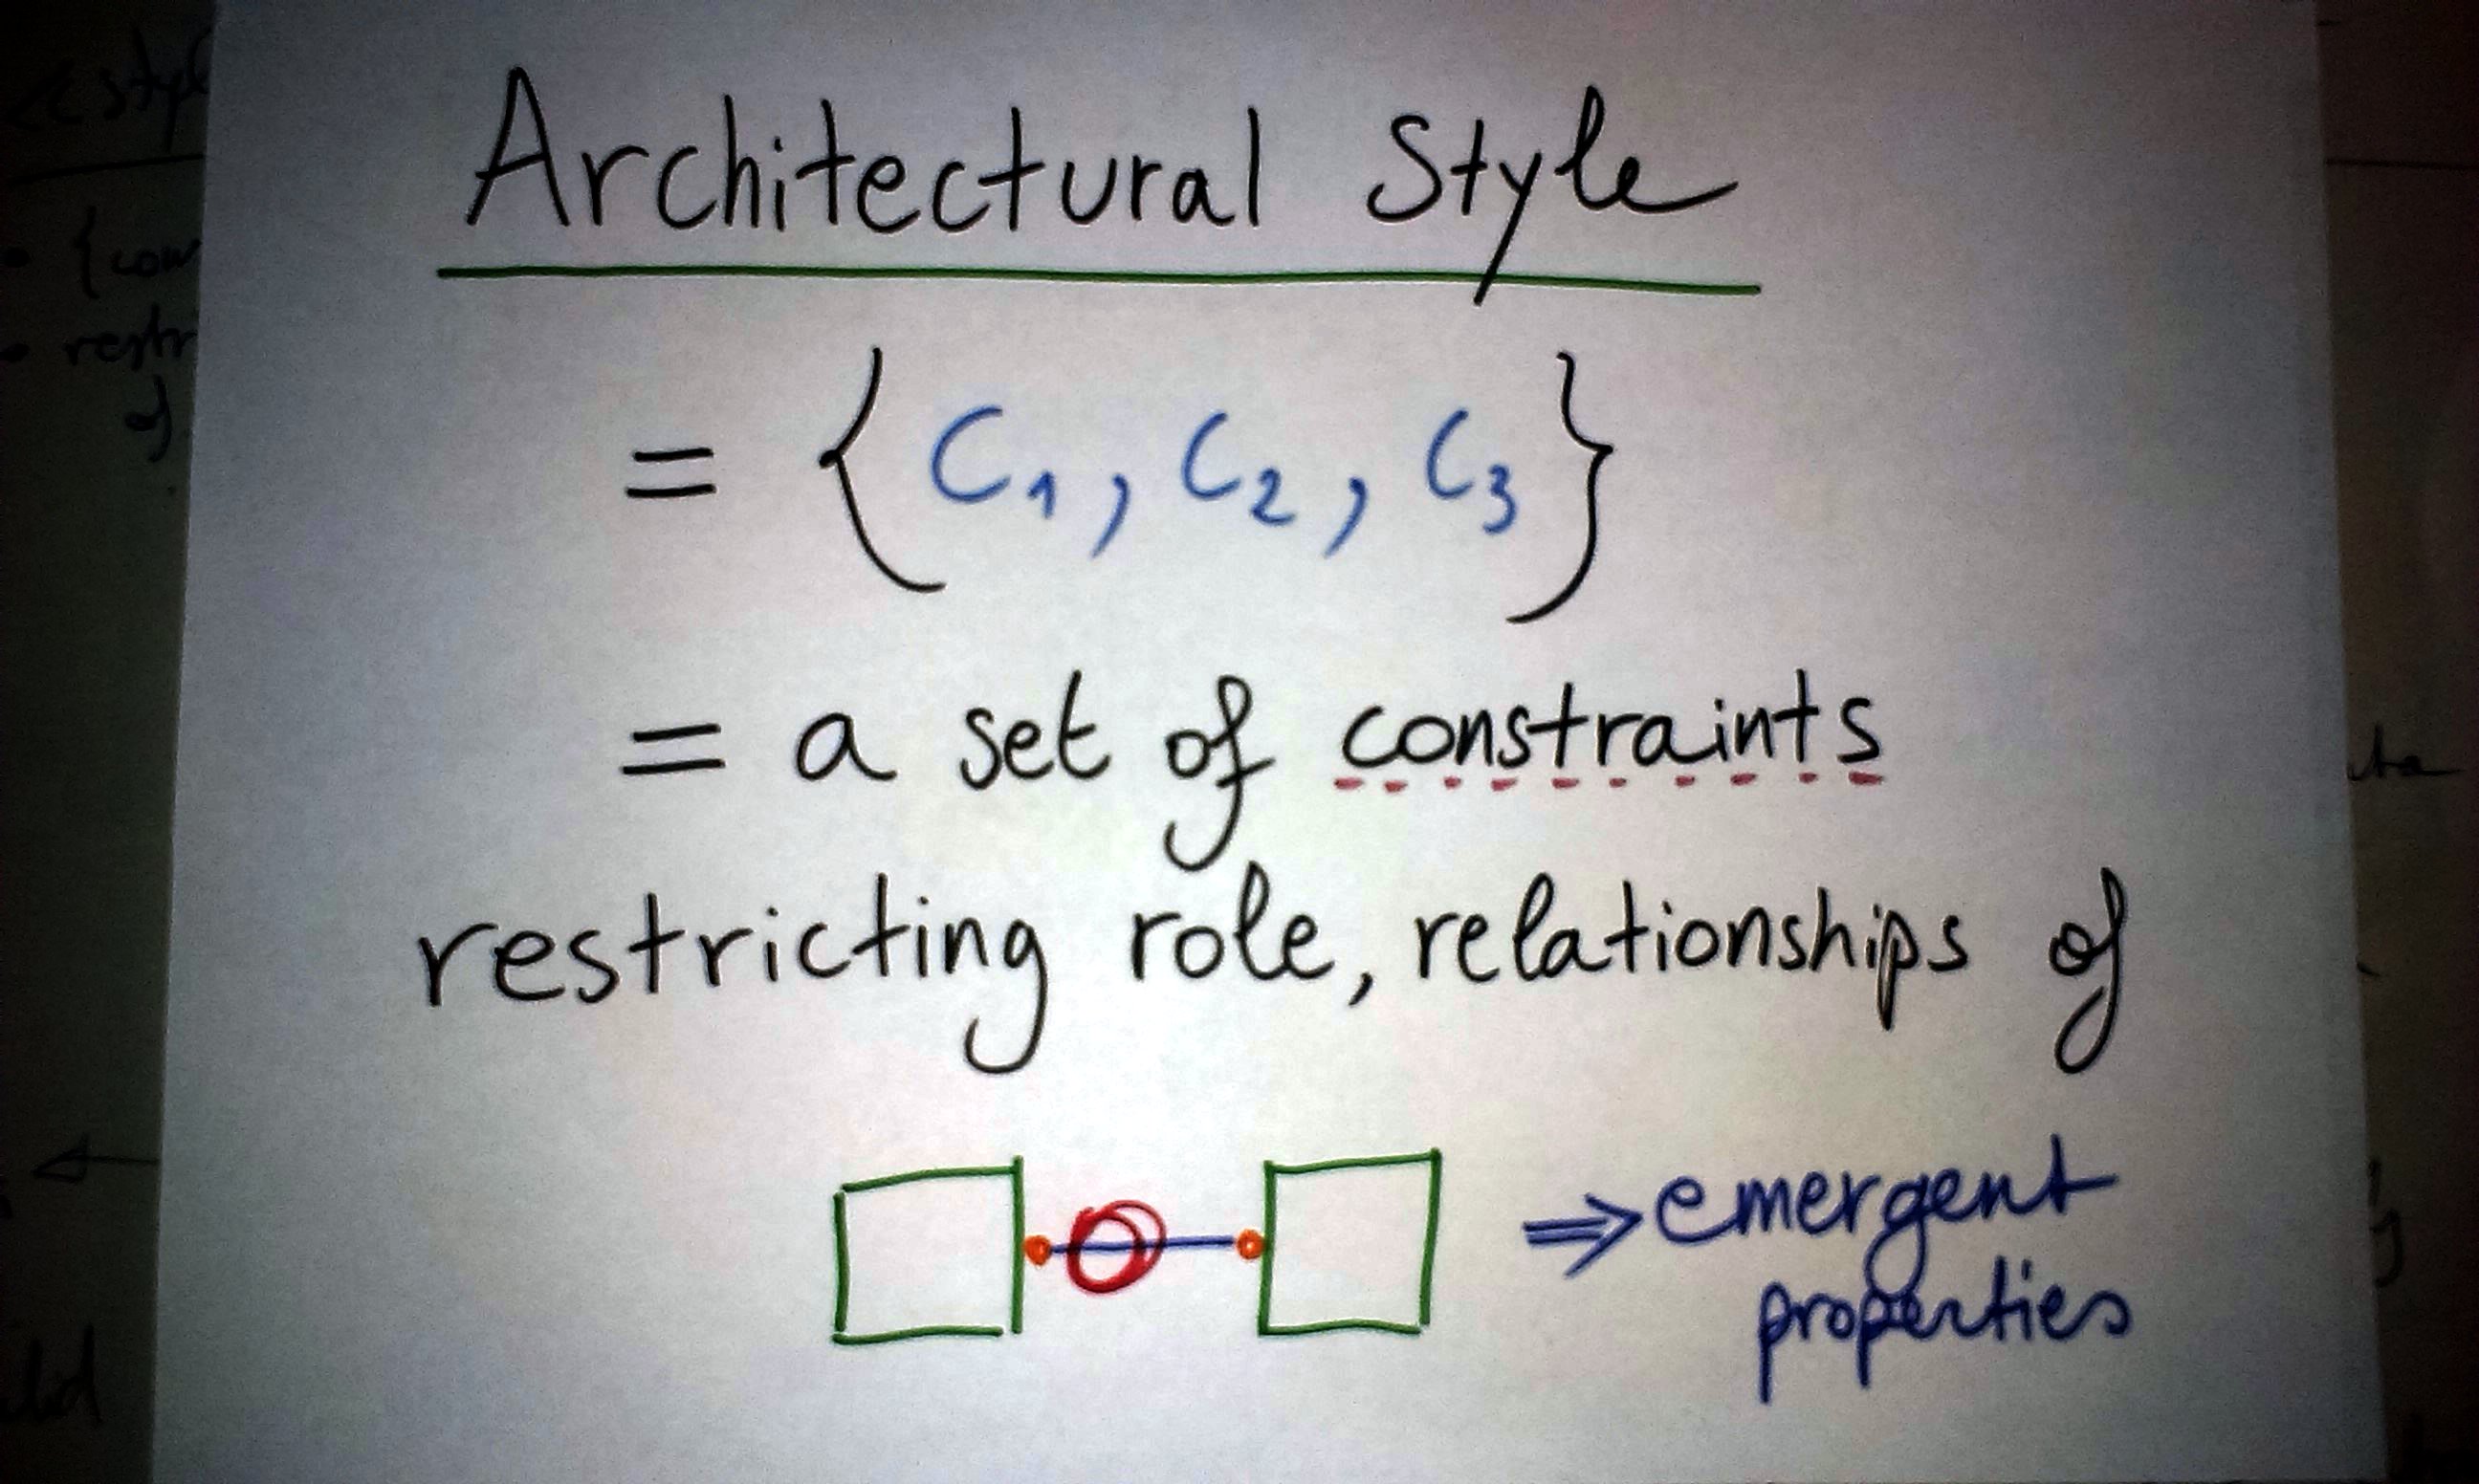 Architectural Style
= { C₁, C₂, C₃ }
= a set of constraints
restricting role, relationships of
⇒ emergent
properties